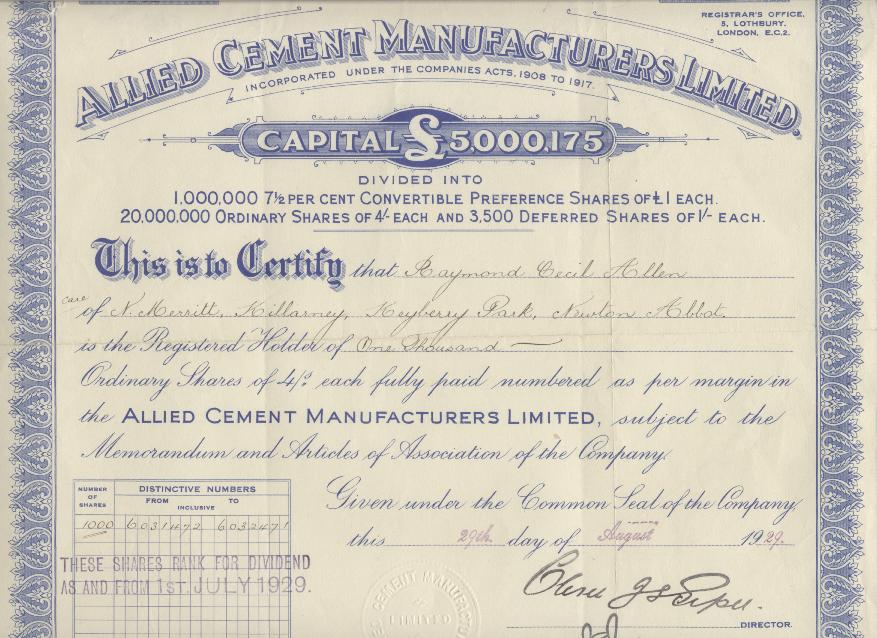 REGISTRAR'S OFFICE,
5, LOTHBURY.
LONDON, E.C.2.
ALLIED CEMENT MANUFACTURERS LIMITED.
INCORPORATED UNDER THE COMPANIES ACTS, 1908 TO 1917.
CAPITAL £5,000,175
DIVIDED INTO
1,000,000 7½ PER CENT CONVERTIBLE PREFERENCE SHARES OF £1 EACH.
20,000,000 ORDINARY SHARES OF 4/- EACH AND 3,500 DEFERRED SHARES OF 1/- EACH.
This is to Certify that Raymond Cecil Allen
care
of N. Merritt, Killarney, Keyberry Park, Newton Abbot.
is the Registered Holder of One Thousand —
Ordinary Shares of 4/- each fully paid numbered as per margin in
the ALLIED CEMENT MANUFACTURERS LIMITED, subject to the
Memorandum and Articles of Association of the Company.
NUMBER OF SHARES
DISTINCTIVE NUMBERS
FROM TO
INCLUSIVE
1000 6031472 6032471
Given under the Common Seal of the Company,
this 29th day of August 1929.
THESE SHARES RANK FOR DIVIDEND
AS AND FROM 1ST. JULY 1929.
CEMENT MANUFACTU
LIMITED
DIRECTOR.